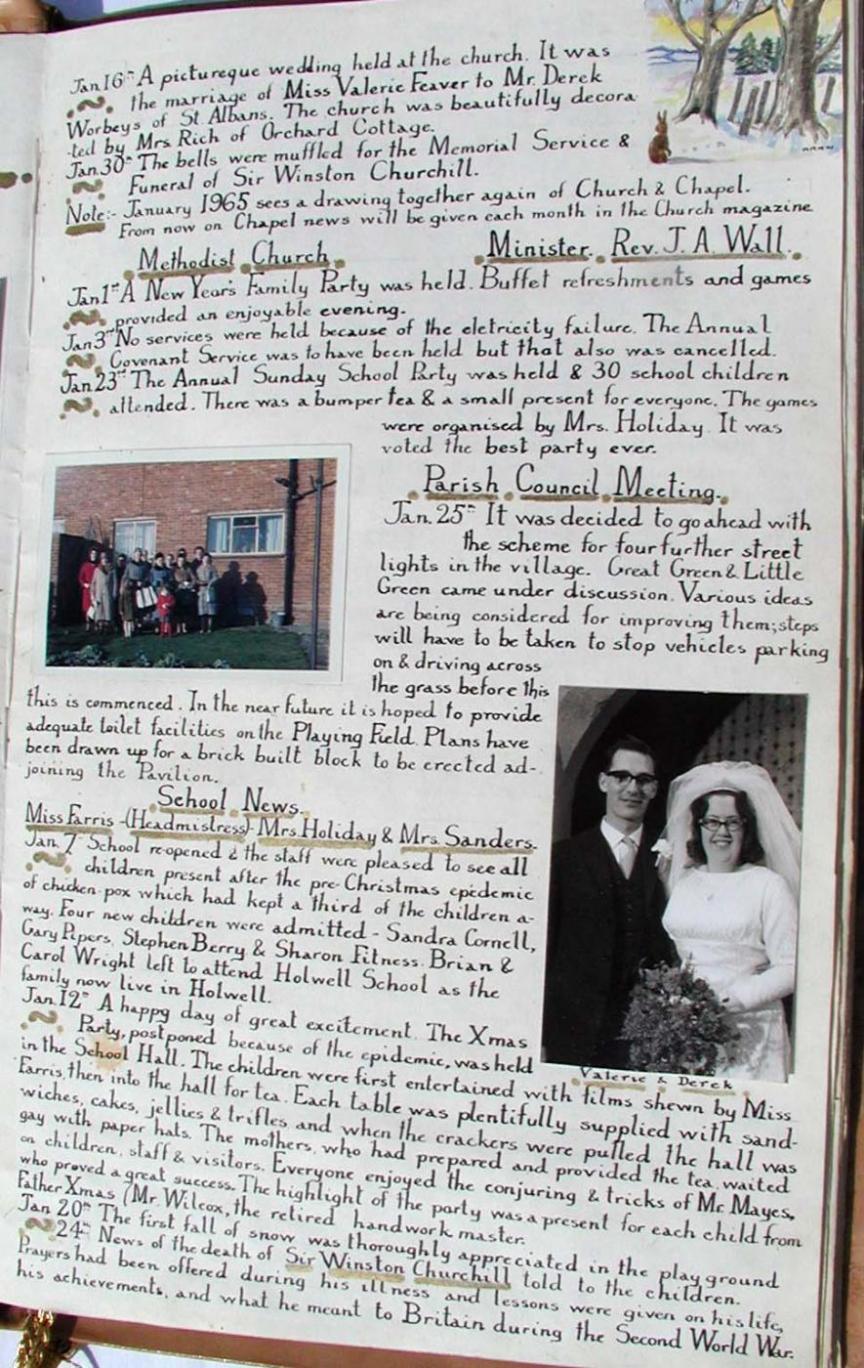 Jan 16th A pictureque wedding held at the church. It was
the marriage of Miss Valerie Feaver to Mr. Derek
Worbeys of St. Albans. The church was beautifully decora
-ted by Mrs Rich of Orchard Cottage.
Jan. 30th The bells were muffled for the Memorial Service &
Funeral of Sir Winston Churchill.
Note:- January 1965 sees a drawing together again of Church & Chapel.
From now on Chapel news will be given each month in the Church magazine
Methodist Church Minister. Rev. J. A. Wall.
Jan 1st A New Year's Family Party was held. Buffet refreshments and games
provided an enjoyable evening.
Jan 3rd No services were held because of the eletricity failure. The Annual
Covenant Service was to have been held but that also was cancelled.
Jan 23rd The Annual Sunday School Party was held & 30 school children
attended. There was a bumper tea & a small present for everyone. The games
were organised by Mrs. Holiday. It was
voted the best party ever.
Parish Council Meeting.
Jan. 25th It was decided to go ahead with
the scheme for four further street
lights in the village. Great Green & Little
Green came under discussion. Various ideas
are being considered for improving them; steps
will have to be taken to stop vehicles parking
on & driving across
the grass before this
this is commenced. In the near future it is hoped to provide
adequate toilet facilities on the Playing Field. Plans have
been drawn up for a brick built block to be erected ad-
joining the Pavilion.
School News.
Miss Farris -(Headmistress)- Mrs. Holiday & Mrs. Sanders.
Jan. 7th School re-opened & the staff were pleased to see all
children present after the pre-Christmas epedemic
of chicken-pox which had kept a third of the children a-
way. Four new children were admitted - Sandra Cornell,
Gary Pipers, Stephen Berry & Sharon Fitness. Brian &
Carol Wright left to attend Holwell School as the
family now live in Holwell.
Jan. 12th A happy day of great excitement. The Xmas
Party, postponed because of the epidemic, was held
in the School Hall. The children were first entertained with films shewn by Miss
Farris, then into the hall for tea. Each table was plentifully supplied with sand-
wiches, cakes, jellies & trifles and when the crackers were pulled the hall was
gay with paper hats. The mothers, who had prepared and provided the tea, waited
on children, staff & visitors. Everyone enjoyed the conjuring & tricks of Mr. Mayes,
who proved a great success. The highlight of the party was a present for each child from
Father Xmas (Mr. Wilcox, the retired handwork master.
Jan 20th The first fall of snow was thoroughly appreciated in the playground
24th News of the death of Sir Winston Churchill told to the children.
Prayers had been offered during his illness and lessons were given on his life,
his achievements, and what he meant to Britain during the Second World War.
Valerie & Derek